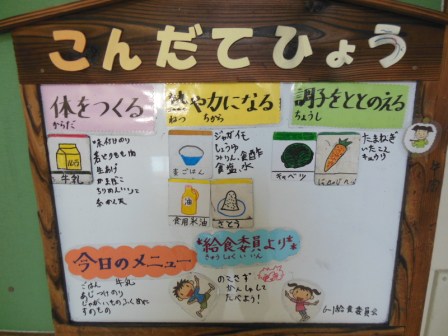 こんだてひょう
体をつくる
からだ
熱や力になる
ねつ ちから
調子をととのえる
ちょうし
牛乳
味付けのり
若とりもも肉
生あげ
かまぼこ
ちりめんいりこ
ごはん
ジャガイモ
しょうゆ
みりん、食酢
食塩、水
食用米油
さとう
キャベツ
にんじん
たまねぎ
きゅうり
今日のメニュー
ごはん 牛乳
あじつけのり
じゃがいものふくめに
すのもの
給食委員より
きゅうしょくいいん
のこさず
かんしゃして
たべよう!
6-1給食委員会